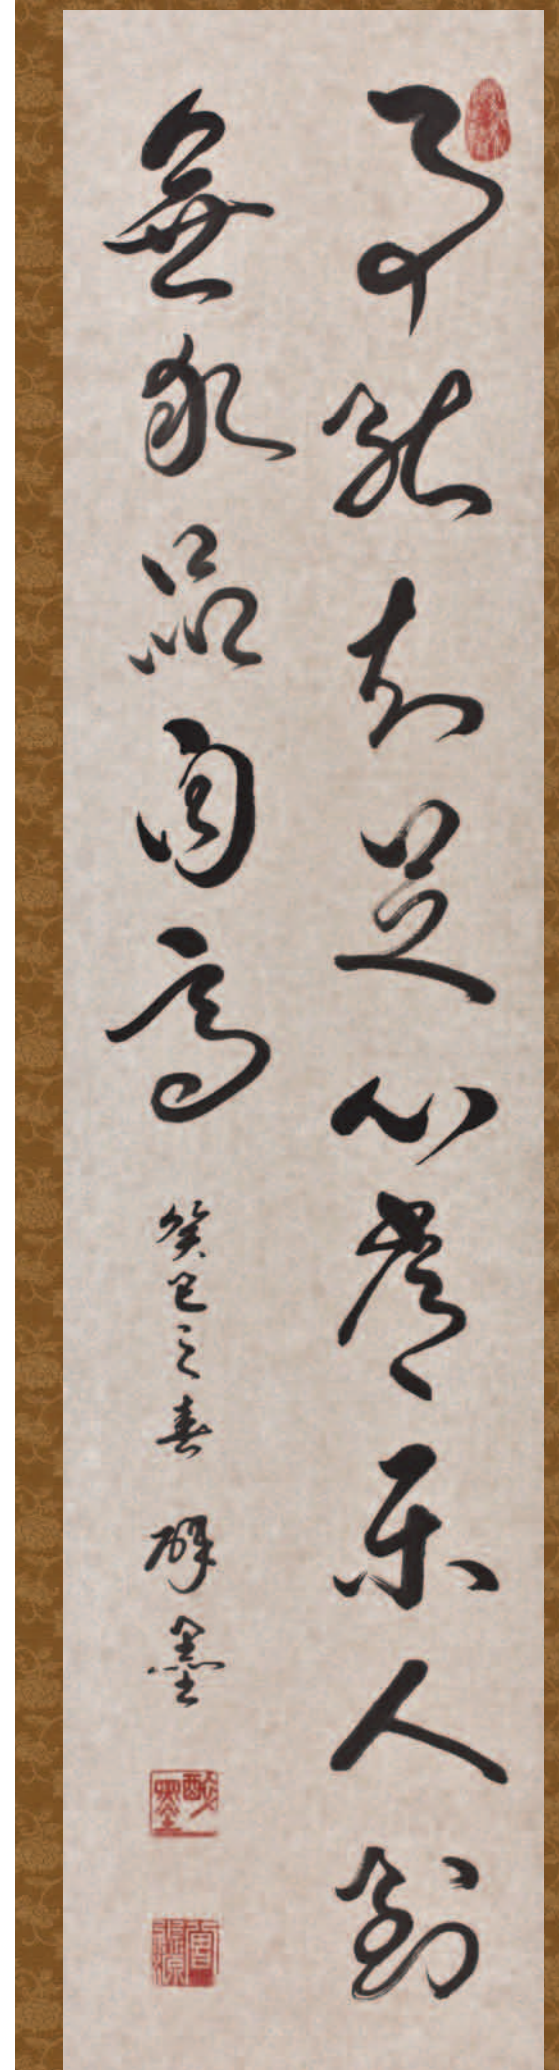 事能知足心常樂人到
無求品自高 癸巳之春 醉墨
醉墨